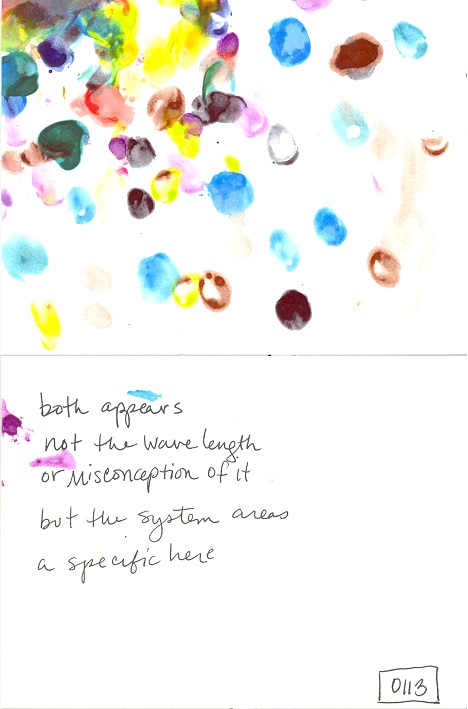 both appears
not the wave length
or misconception of it
but the system areas
a specific here
0113